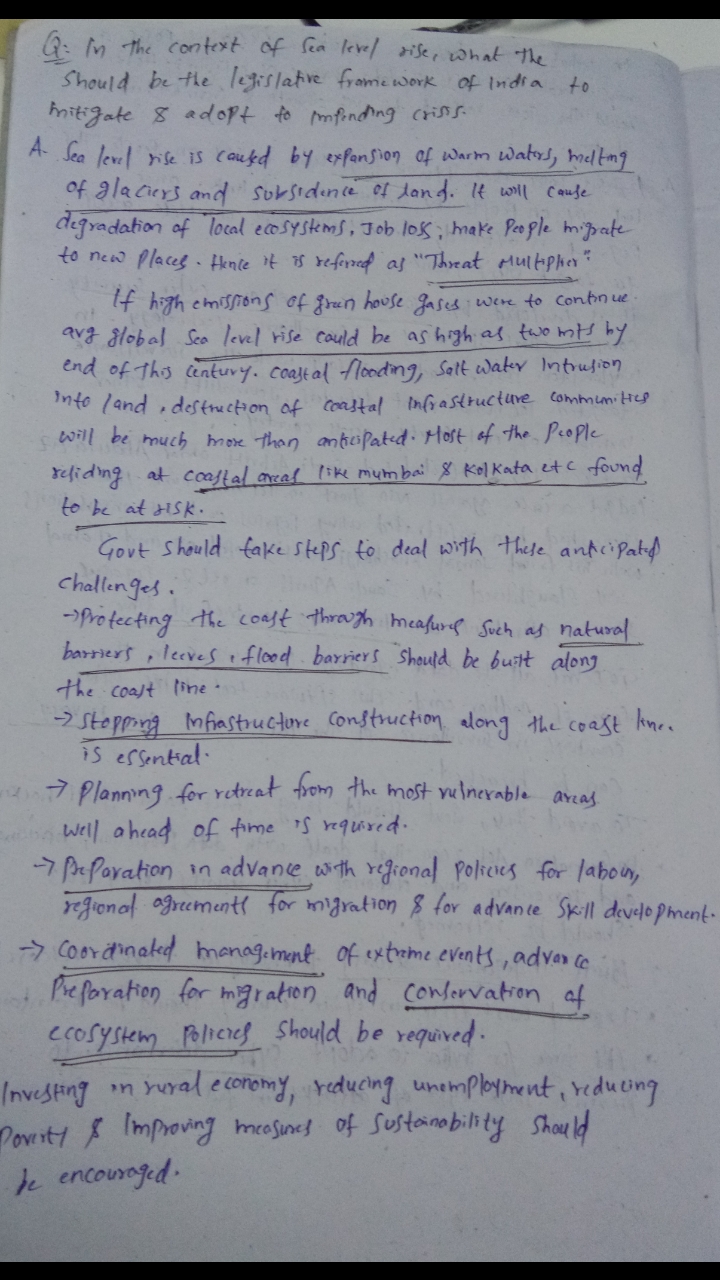 Q: In the context of Sea level rise, what the
should be the legislative framework of India to
mitigate & adopt to impending crisis.
A. Sea level rise is caused by expansion of warm waters, melting
of glaciers and subsidence of land. It will cause
degradation of local ecosystems, Job loss, make People migrate
to new places. Hence it is referred as "Threat Multiplier".
If high emissions of green house gases were to continue
avg global Sea level rise could be as high as two mts by
end of this century. coastal flooding, Salt water Intrusion
into land, destruction of coastal Infrastructure communities
will be much more than anticipated. Most of the People
reliding at coastal areas like mumbai & Kolkata etc found
to be at risk.
Govt should take steps to deal with these anticipated
challenges.
→ Protecting the coast through measures such as natural
barriers, leeves, flood barriers should be built along
the coast line.
→ Stopping Infrastructure construction along the coast line.
is essential.
→ Planning for retreat from the most vulnerable areas
well ahead of time is required.
→ Preparation in advance with regional policies for labour,
regional agreements for migration & for advance Skill development.
→ Coordinated management of extreme events, advance
Preparation for migration and conservation of
ecosystem policies should be required.
Investing in rural economy, reducing unemployment, reducing
Poverty & Improving measures of Sustainability should
be encouraged.